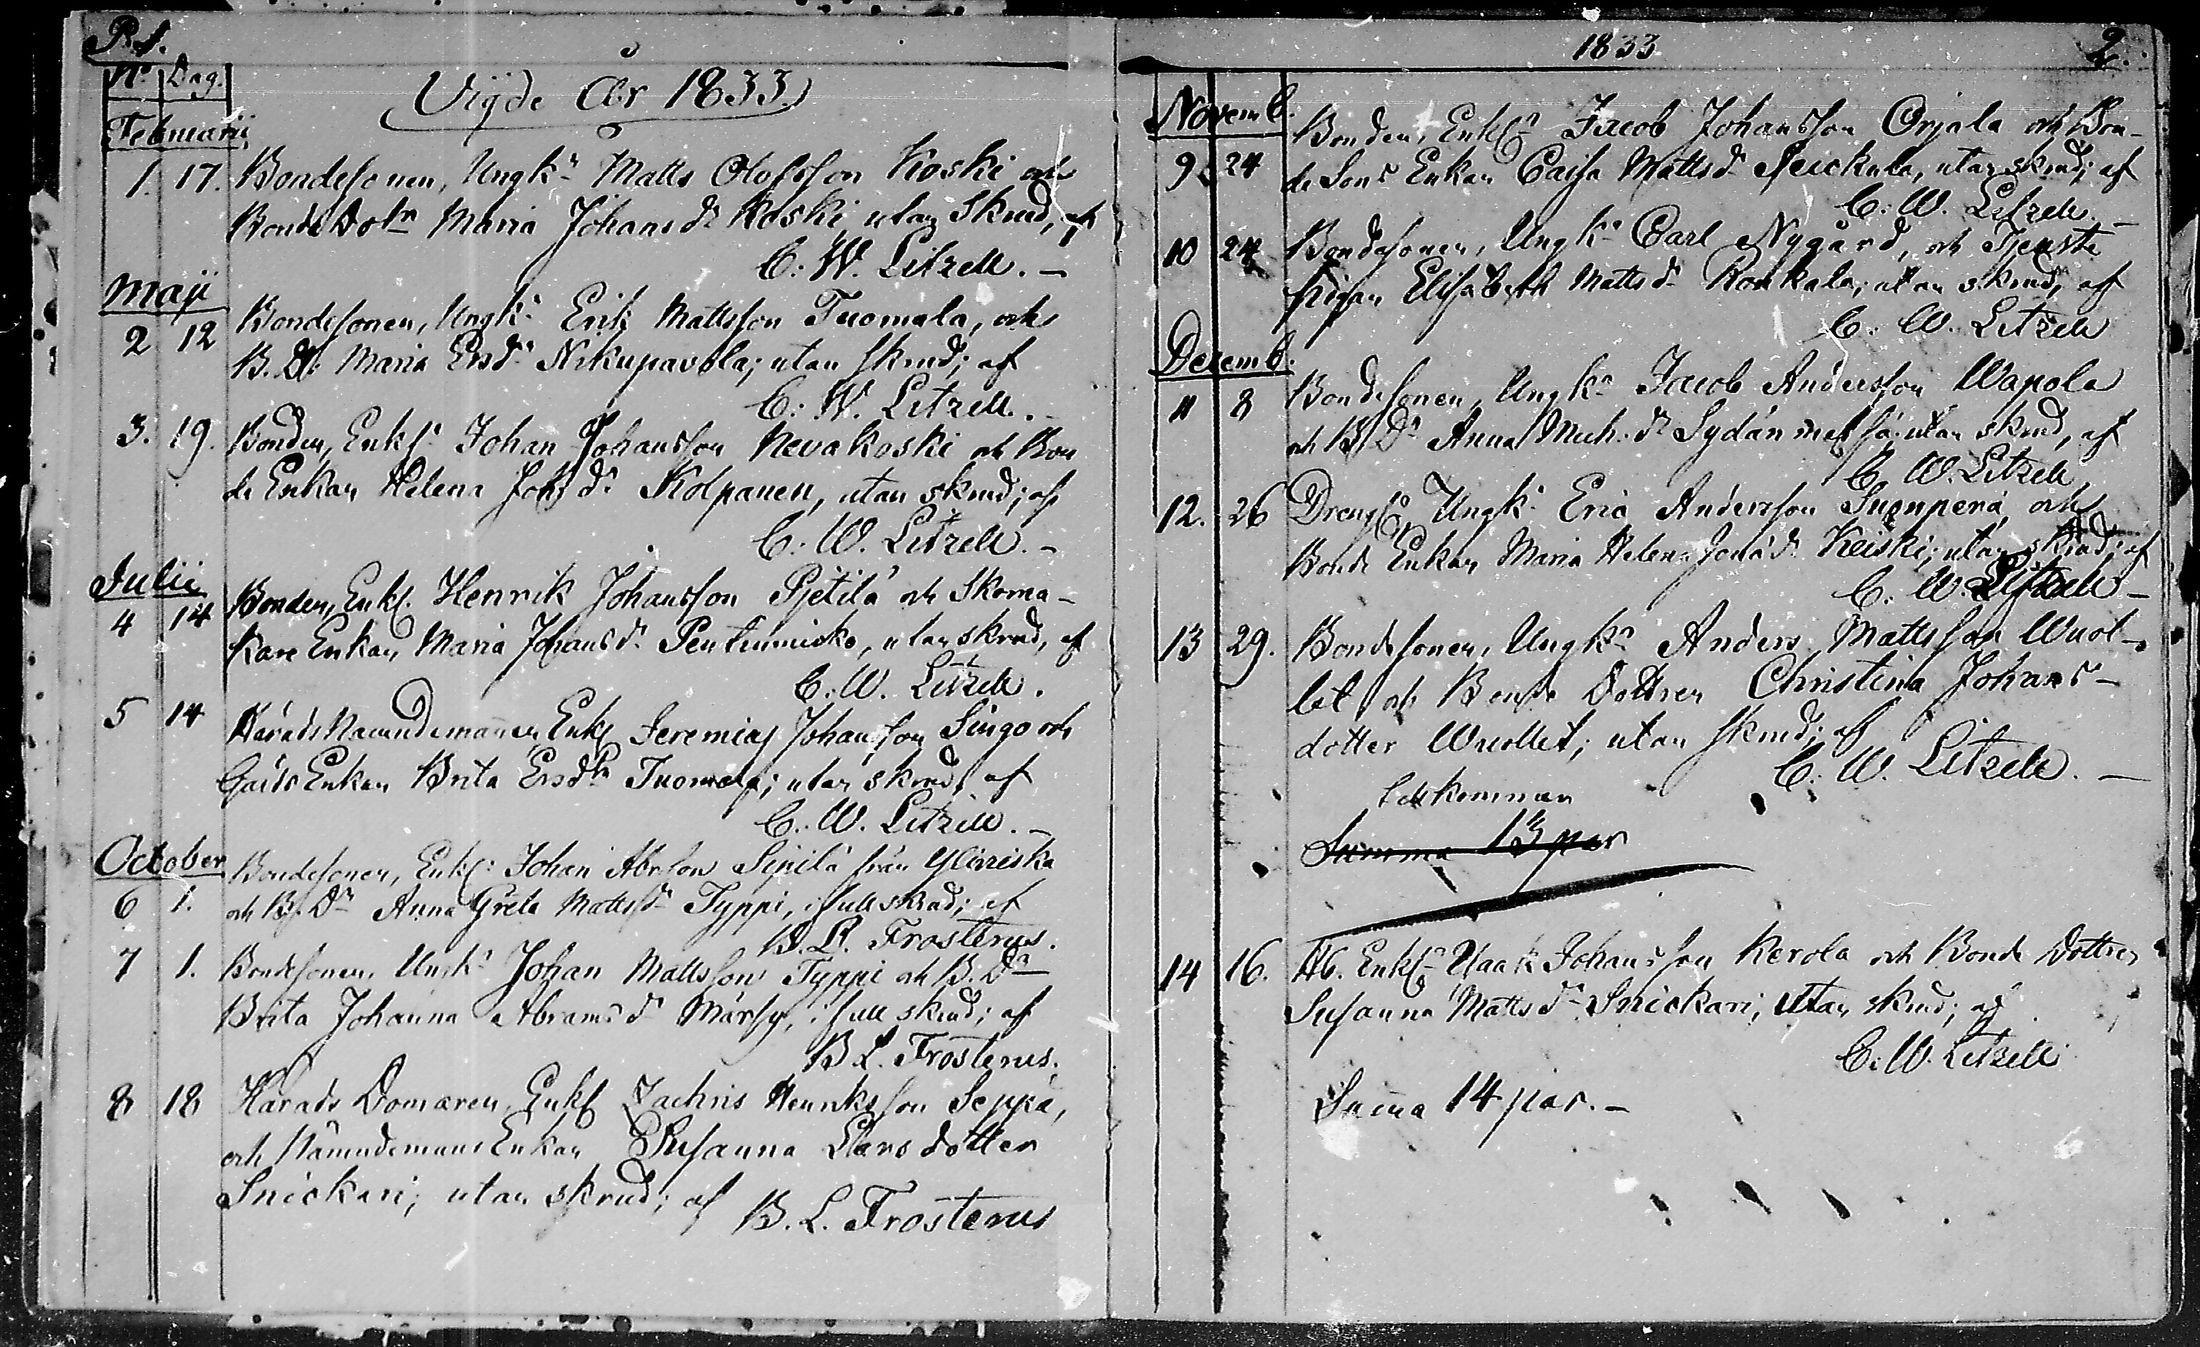 P. 1.
No Dag.
Vigde År 1833
Februarii
1. 17. Bondesonen, Ungkn Matts Olofsson Koski och
Bonde Dotn Maria Johansdr Koski, utan skrud, af
C: W. Litzell. –
Maji
2 12 Bondesonen, Ungkn Erik Mattsson Tuomala, och
B. Dr. Maria Ersdr Nikupavola; utan skrud; af
C: W. Litzell. –
3. 19. Bonden, Enkl. Johan Johansson Nevakoski och Bon
de Enkan Helena Johsdr Kolpanen, utan skrud; af
C: W. Litzell. –
Julii
4 14 Bonden, Enkl. Henrik Johansson Pjetilä och Skoma-
kare Enkan Maria Johansdr Penttinmiska, utan skrud, af
C: W. Litzell.
5 14 Härads Nämndemannen Enkl Jeremias Johansson Singo och
Gårds Enkan Brita Ersdr Tuomala; utan skrud, af
C: W. Litzell. –
October
6 1. Bondesonen, Enkl: Johan Abrson Sipilä från Yliviska
och B. Dr Anna Greta Mattsdr Typpi, i full skrud; af
B. L. Frosterus.
7 1. Bondesonen, Ungkn Johan Mattsson Typpi och B. Dr
Brita Johanna Abramsdr Märsy, i full skrud; af
B. L. Frosterus.
8 18 Härads Domaren, Enkl Zachris Henriksson Seppä,
och Nämndemans Enkan Susanna Larsdotter
Snickari; utan skrud; af B. L. Frosterus
1833 2.
Novemb.
9 24 Bonden, Enkln Jacob Johansson Orjala och Bon-
de Sons Enkan Caisa Mattsdr utan skrud; af
C: W. Litzell. –
10 24 Bondesonen, Ungkn Carl Nygård, och Tjenste
pigan Elisabeth Mattsdr Ronkala; utan skrud, af
C: W. Litzell
Decemb.
11 8 Bondesonen, Ungkn Jacob Andersson Wapola
och B Dr Anna Mich:dr Sydänmetsä, utan skrud, af
C. W. Litzell
12. 26 Drengen Ungkn Eric Andersson Suonperä, och
Bonde Enkan Maria Helena Jonädr Keiski; utan skrud; af
C. W. Litzell –
13 29. Bondesonen, Ungkn Anders Mattsson Wuol-
let och Bonde Dottren Christina Johans-
dotter Wuollet; utan skrud; af
C. W. Litzell. –
Summa 13 par
14 16. Ab. Enkln Isaak Johansson Kerola och Bonde Dottren
Susanna Mattsdr Snickari; utan skrud; af
C. W. Litzell
Suma 14 par. –